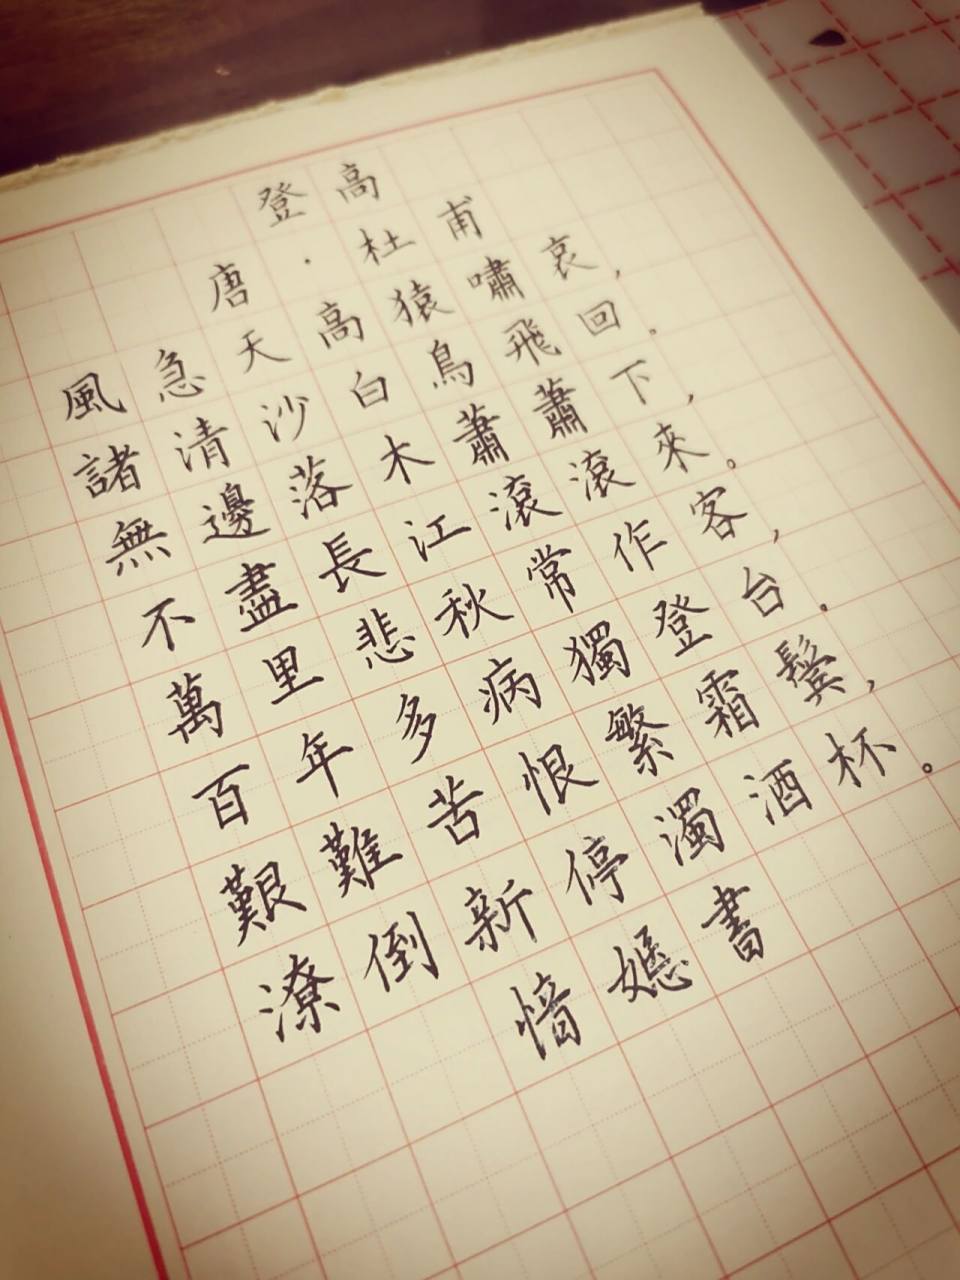 登高
唐·杜甫
風急天高猿嘯哀，
諸清沙白鳥飛回。
無邊落木蕭蕭下，
不盡長江滾滾來。
萬里悲秋常作客，
百年多病獨登台。
艱難苦恨繁霜鬓，
潦倒新停濁酒杯。
書